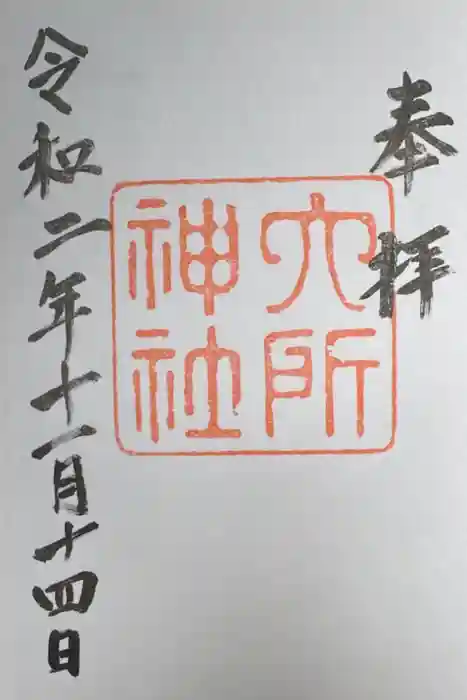 奉拝
六所
神社
令和二年十一月十四日